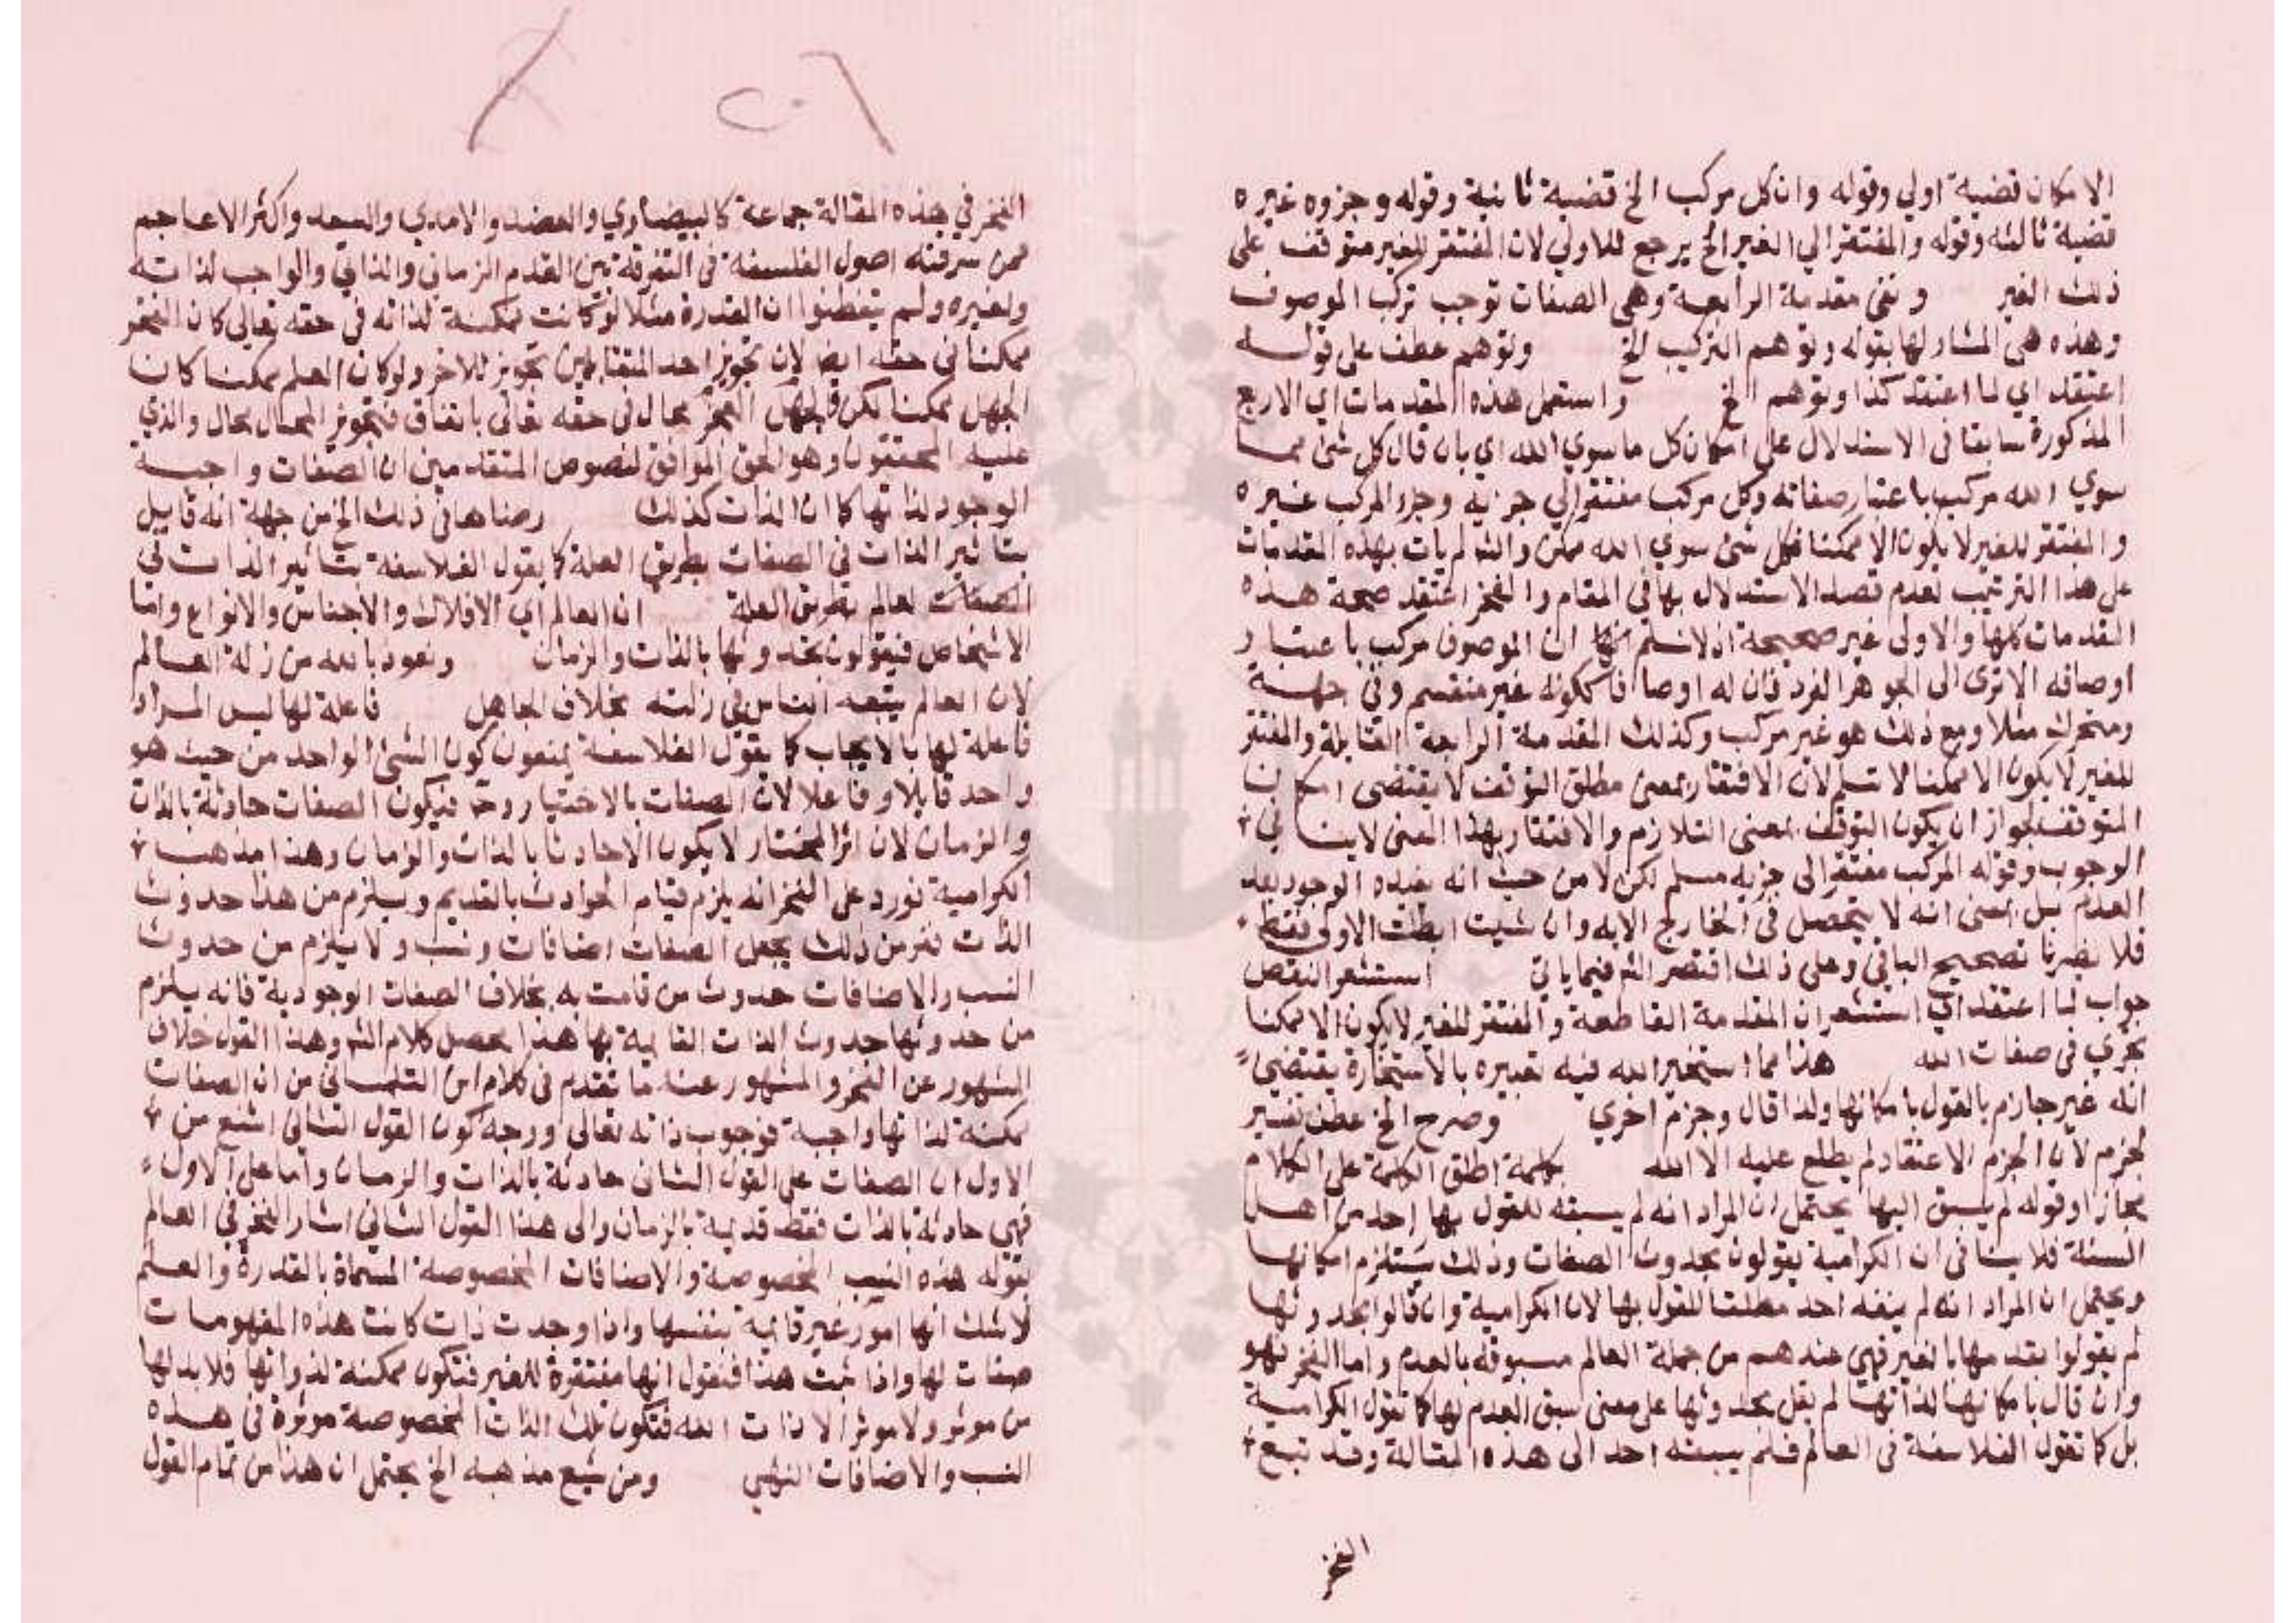 الامكان قضية اولي وقوله وان كل مركب الخ قضية ثانية وقوله وجزوه غيره
قضية ثالثه وقوله والمفتقر الي الغير الخ يرجع للاولي لان المفتقر للغير متوقف على
ذلك الغير ونفى مقدمة الرابعة وهي الصفات توجب تركب الموصوف
وهذه هى المشار لها بقوله وتوهم التركيب الخ وتوهم عطف على قوله
اعتقد اي لما اعتقد كذا وتوهم الخ واستعمل هذه المقدمات اي الاربع
المذكورة سابقا فى الاستدلال على امكان كل ماسوي الله اي بان قال كل شئ مما
سوي الله مركب باعتبار صفاته وكل مركب مفتقر الي جزيه وجزء المركب غيره
والمفتقر للغير لا يكون الا ممكنا فكل شئ سوي الله ممكن والشم لم يات بهذه المقدمات
على هذا الترتيب لعدم قصد الاستدلال بها في المقام والفخر اعتقد صحة هذه
المقدمات كلها والاولى غير صحيحة اذ لا نسلم ان الموصوف مركب باعتبار
اوصافه الا ترى الى الجوهر الفرد فان له اوصافا ككونه غير منقسم وفي جهة
ومتحرك مثلا ومع ذلك هو غير مركب وكذلك المقدمة الرابعة القايلة والمفتقر
للغير لا يكون الا ممكنا لا تسلم لان الافتقار بمعنى مطلق التوقف لا يقتضى امكان
المتوقف لجواز ان يكون التوقف بمعنى التلازم والافتقار بهذا المعنى لا ينافي
الوجوب وقوله المركب مفتقر الى جزيه مسلم لكن لا من حيث انه يفيده الوجود بعد
العدم بل بمعنى انه لا يتحصل فى الخارج الابه وان شيت ابطلت الاولى فقط
فلا يضرنا تصحيح الباقي وعلى ذلك اقتصر الشم فيما ياتي استشعر النقض
جواب لما اعتقد اي استشعر ان المقدمة القاطعة والمفتقر للغير لا يكون الا ممكنا
تجري فى صفات الله هذا مما استخير الله فيه تعبيره بالاستخارة يقتضي
انه غير جازم بالقول بامكانها ولذا قال وجزم اخري وصرح الخ عطف تفسير
لجزم لان الجزم الاعتقاد لم يطلع عليه الا الله بكلمة اطلق الكلمة على الكلام
مجازا وقوله لم يسبق اليها يحتمل ان المراد انه لم يسبقه للقول بها احد من اهل
السنة فلا ينافى ان الكرامية يقولون بحدوث الصفات وذلك يستلزم امكانها
ويحتمل ان المراد انه لم يسبقه احد مطلقا للقول بها لان الكرامية وان قالوا بحدوثها
لم يقولوا بقدمها بالغير فهي عندهم من جملة العالم مسبوقة بالعدم واما الفخر فهو
وان قال بامكانها لذاتها لم يقل بحدوثها على معنى سبق العدم لها كما تقول الكرامية
بل كما تقول الفلاسفة فى العالم فلم يسبقه احد الى هذه المقالة وقد تبع
الفخر
الفخر في هذه المقالة جماعة كالبيضاوي والعضد والامدي والسعد واكثر الاعاجم
ممن سرقته اصول الفلسفة فى التفرقة بين القدم الزمانى والذاتي والواجب لذاته
ولغيره ولم يتفطنوا ان القدرة مثلا لو كانت ممكنة لذاته في حقه تعالى كان العجز
ممكنا فى حقه ايضا لان تجويز احد المتقابلين تجويز للاخر ولو كان العلم ممكنا كان
الجهل ممكنا لكن الجهل العجز محال فى حقه تعالى باتفاق فتجويز المحال محال والذي
عليه المحققون وهو الحق الموافق لنصوص المتقدمين ان الصفات واجبة
الوجود لذاتها كما ان الذات كذلك وضاهافى ذلك الخ من جهة انه قايل
بتاثير الذات فى الصفات بطريق العلة كما يقول الفلاسفة بتاثير الذات في
العالم بطريق العلة ان العالم اي الافلاك والاجناس والانواع واما
الاشخاص فيقولون بحدوثها بالذات والزمان ونعوذ بالله من زلة العالم
لان العالم يتبعه الناس في زلته بخلاف الجاهل فاعلة لها ليس المراد
فاعلة لها بالايجاب كما يقول الفلاسفة يمنعون كون الشئ الواحد من حيث هو
واحد قابلا وفاعلا لان الصفات بالاختيار وح فيكون الصفات حادثة بالذات
والزمان لان اثر المختار لا يكون الا حادثا بالذات والزمان وهذا مذهب
الكرامية نورد على الفخر انه يلزم قيام الحوادث بالقديم ويلزم من هذا حدوث
الذات ففر من ذلك بجعل الصفات اضافات ونسب ولا يلزم من حدوث
النسب والاضافات حدوث من قامت به بخلاف الصفات الوجودية فانه يلزم
من حدوثها حدوث الذات القايمة بها هذا محصل كلام الشم وهذا القول خلاف
المشهور عن الفخر والمشهور عنه ما تقدم فى كلام ابن التلمسانى من ان الصفات
ممكنة لذاتها واجبة لوجوب ذاته تعالى ووجه كون القول الثانى اشنع من
الاول ان الصفات على القول الثانى حادثة بالذات والزمان واما على الاول
فهى حادثة بالذات فقط قديمة بالزمان والى هذا القول الثانى اشار الفخر في المعالم
بقوله هذه النسب المخصوصة والاضافات المخصوصة المسماة بالقدرة والعلم
لاشك انها امور غير قايمة بنفسها واذا وجدت ذات كانت هذه المفهومات
صفات لها واذا ثبت هذا فنقول انها مفتقرة للغير فتكون ممكنة لذواتها فلا بد لها
من موثر ولا موثر الا ذات الله فتكون تلك الذات المخصوصة موثرة فى هذه
النسب والاضافات انتهى ومن شيع مذهبه الخ يحتمل ان هذا من تمام القول